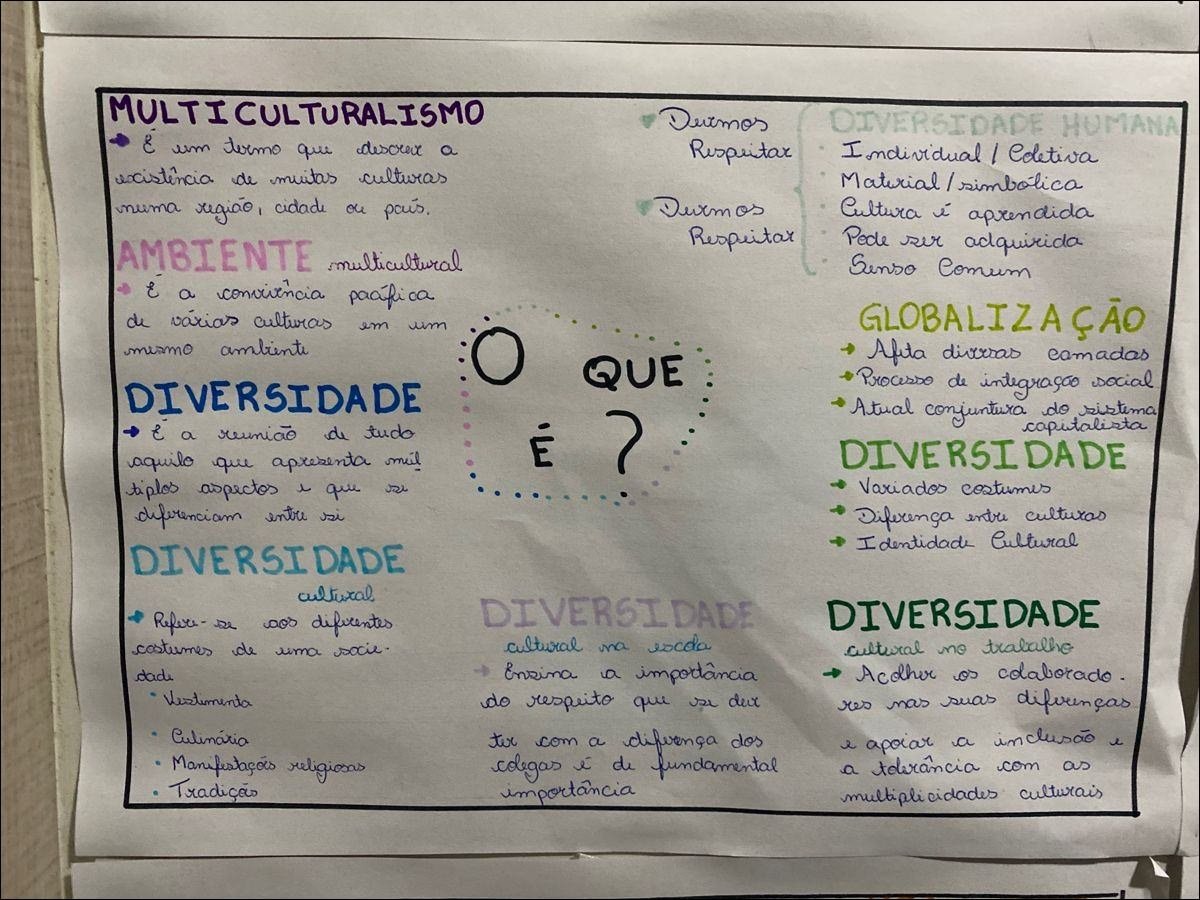 MULTICULTURALISMO
É um termo que descreve a
existência de muitas culturas
numa região, cidade ou país.
AMBIENTE multicultural
É a convivência pacífica
de várias culturas em um
mesmo ambiente
DIVERSIDADE
É a reunião de tudo
aquilo que apresenta múl
tiplos aspectos e que se
diferenciam entre si
DIVERSIDADE
cultural
Refere-se aos diferentes
costumes de uma socie-
dade
Vestimenta
Culinária
Manifestações religiosas
Tradições
O QUE
É ?
DIVERSIDADE
cultural na escola
Ensina a importância
do respeito que se deve
ter com a diferença dos
colegas é de fundamental
importância
Devemos
Respeitar
Devemos
Respeitar
DIVERSIDADE HUMANA
Individual / Coletiva
Material / simbólica
Cultura é aprendida
Pode ser adquirida
Senso Comum
GLOBALIZAÇÃO
Afeta diversas camadas
Processo de integração social
Atual conjuntura do sistema
capitalista
DIVERSIDADE
Variados costumes
Diferença entre culturas
Identidade Cultural
DIVERSIDADE
cultural no trabalho
Acolher os colaborado-
res nas suas diferenças
e apoiar a inclusão e
a tolerância com as
multiplicidades culturais